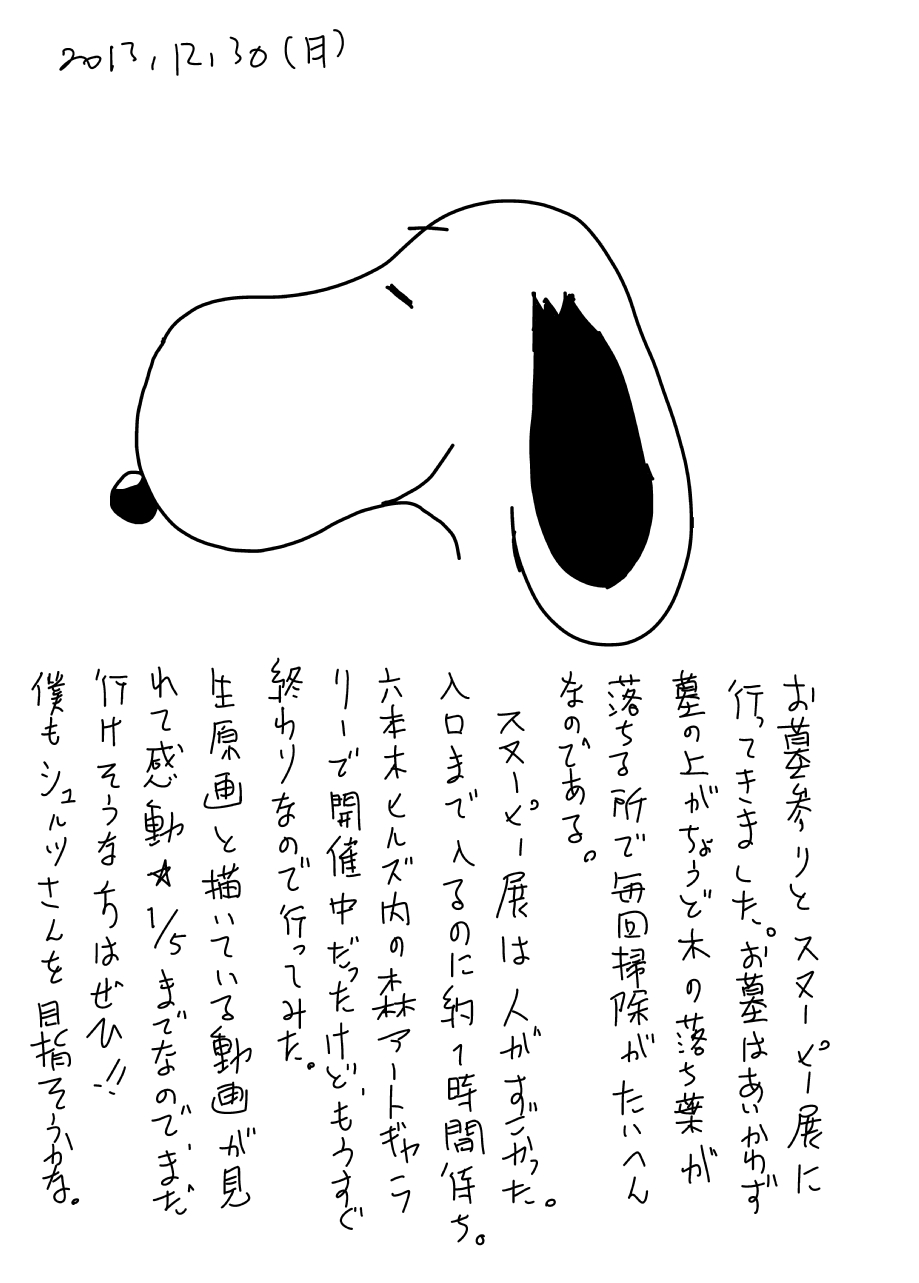 2013.12.30(月)
お墓参りとスヌーピー展に
行ってきました。お墓はあいかわらず
墓の上がちょうど木の落ち葉が
落ちる所で毎回掃除がたいへん
なのである。
スヌーピー展は人がすごかった。
入口まで入るのに約1時間待ち。
六本木ヒルズ内の森アートギャラ
リーで開催中だったけど、もうすぐ
終わりなので行ってみた。
生原画と描いている動画が見
れて感動★1/5までなので、まだ
行けそうな方はぜひ!!
僕もシュルツさんを目指そうかな。